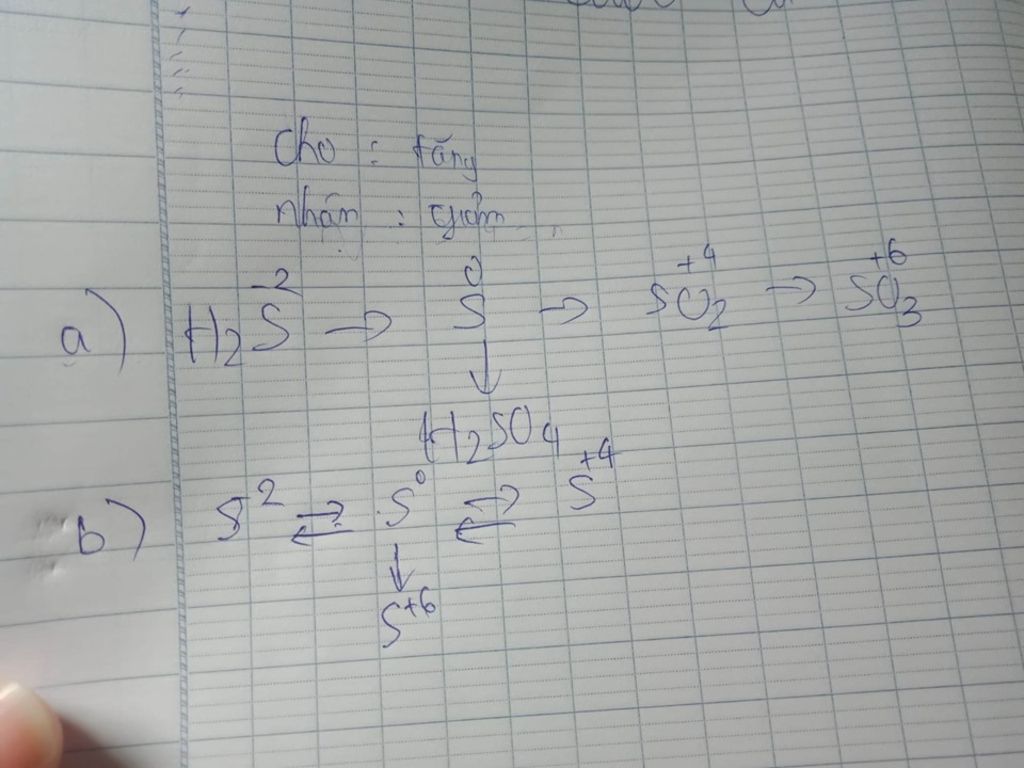 cho : tăng
nhận : giảm
-2 0 +4 +6
a) H2S → S → SO2 → SO3
↓
H2SO4
b) S² ⇄ S⁰ ⇄ S+4
↓
S+6